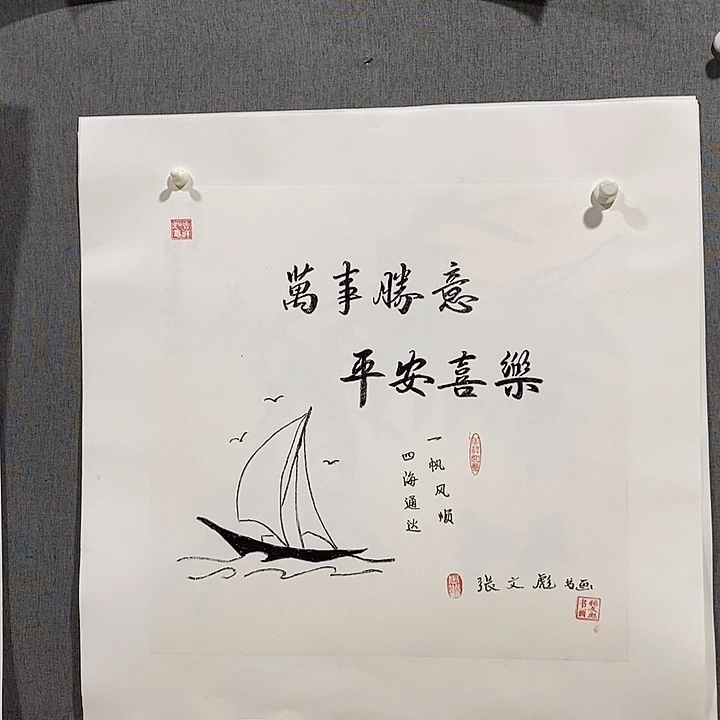 萬事勝意
平安喜樂
一帆风顺
四海通达
张文彪书画